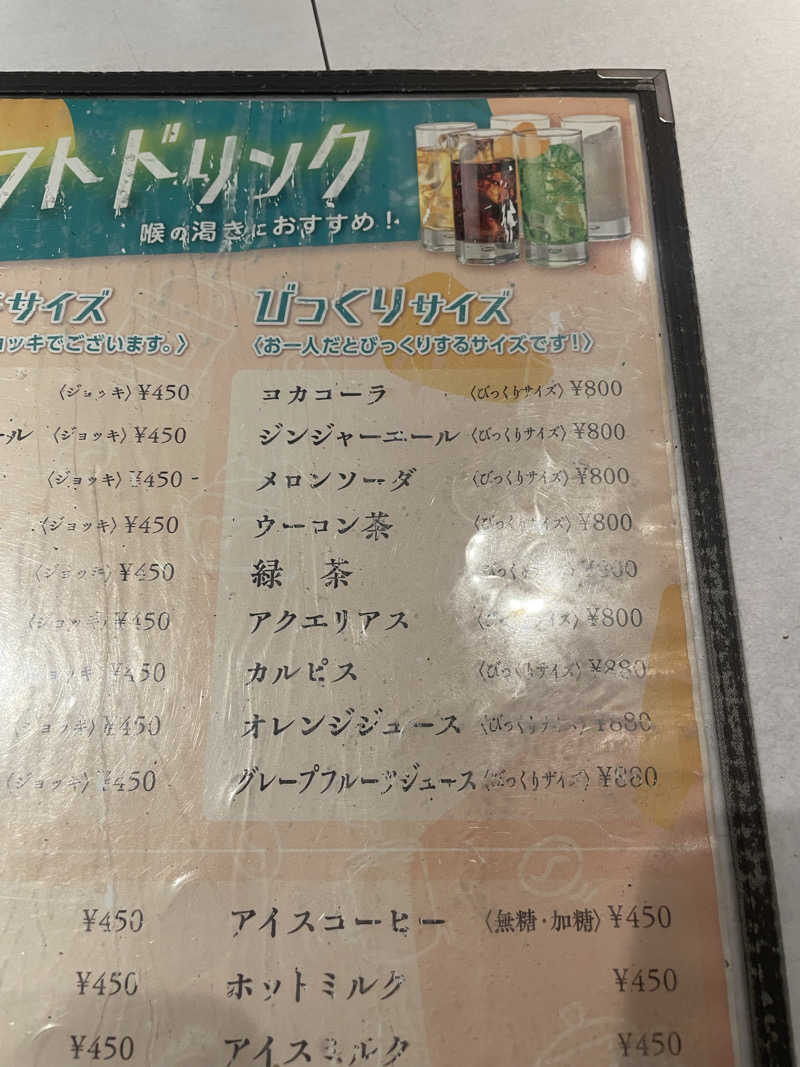 フトドリンク
喉の渇きにおすすめ！
サイズ
ョッキでございます。〉
〈ジョッキ〉¥450
ール 〈ジョッキ〉¥450
〈ジョッキ〉¥450
〈ジョッキ〉¥450
〈ジョッキ〉¥450
〈ジョッキ〉¥450
ョッキ〉¥450
〈ジョッキ〉¥450
〈ジョッキ〉¥450
びっくりサイズ
〈お一人だとびっくりするサイズです！〉
コカコーラ 〈びっくりサイズ〉¥800
ジンジャーエール 〈びっくりサイズ〉¥800
メロンソーダ 〈びっくりサイズ〉¥800
ウーロン茶 〈びっくりサイズ〉¥800
緑 茶
アクエリアス 〈びっくりサイズ〉¥800
カルピス 〈びっくりサイズ〉¥880
オレンジジュース 〈びっくりサイズ〉¥880
グレープフルーツジュース 〈びっくりサイズ〉¥880
¥450
¥450
¥450
アイスコーヒー 〈無糖・加糖〉¥450
ホットミルク ¥450
アイスミルク ¥450